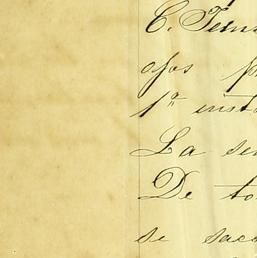 C. Tem
ojos p
1ª inst
La sen
De to
se saca